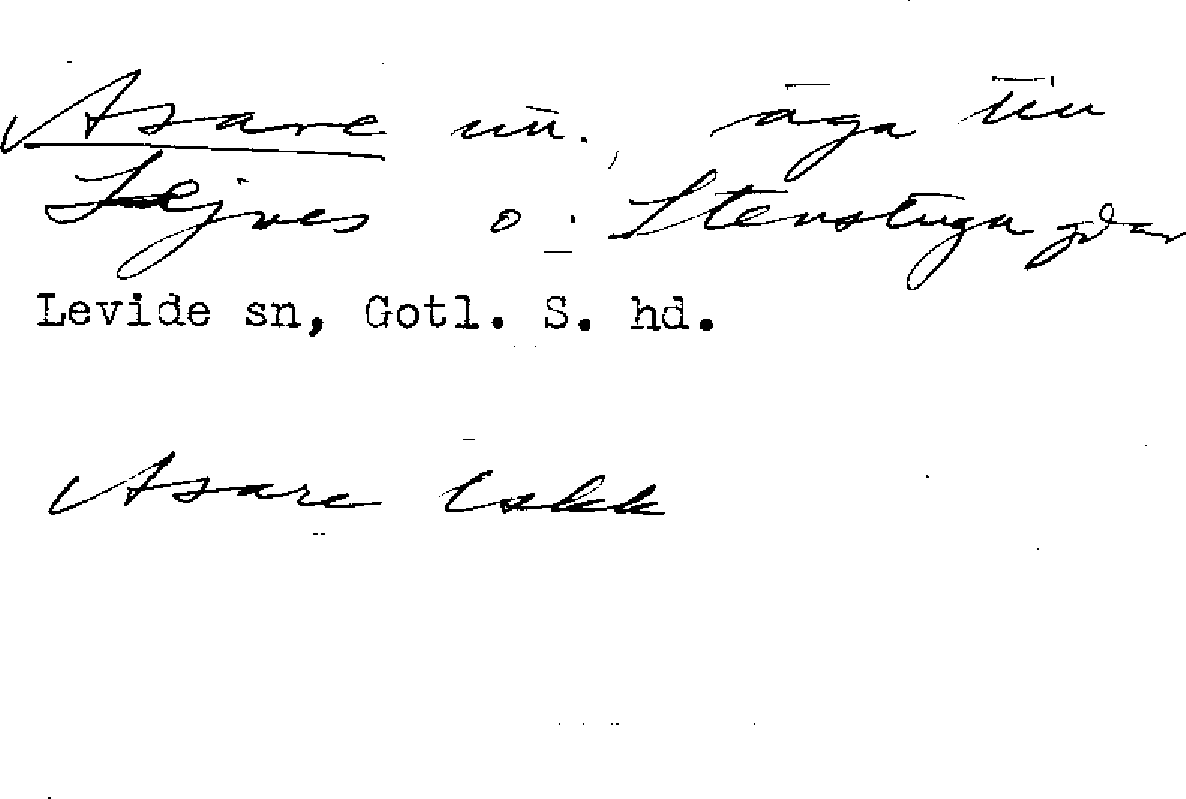 Asare un., äga till
Lejves o. Stenstuga gdar
Levide sn, Gotl. S. hd.
Asare Eskk